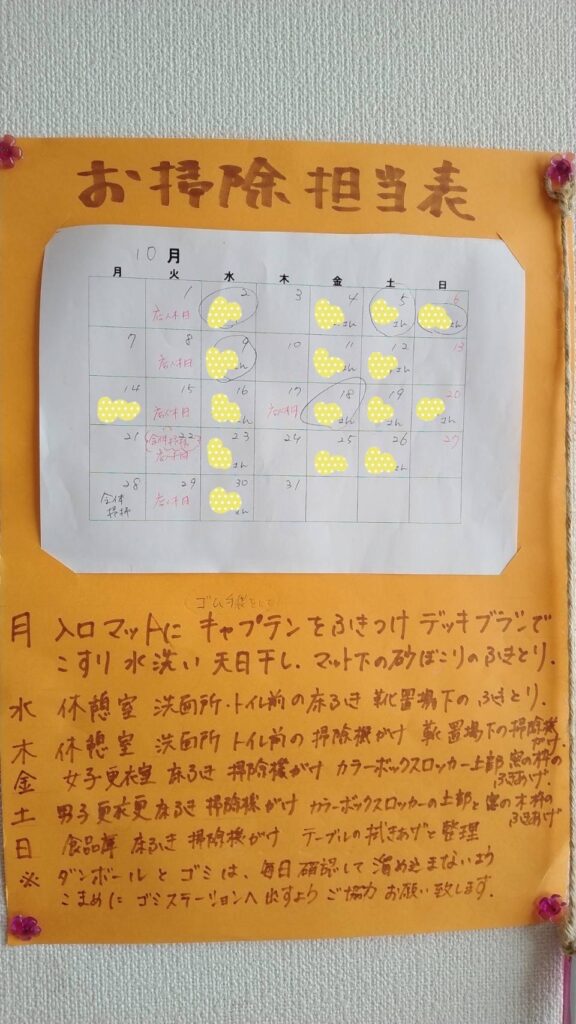 お掃除担当表
10月
月 火 水 木 金 土 日
1 2 3 4 5 6
店休日 さん さん さん
7 8 9 10 11 12 13
店休日 さん さん さん
14 15 16 17 18 19 20
店休日 さん 店休日 さん さん さん
21 22 23 24 25 26 27
全体掃除
店休日 さん さん
28 29 30 31
全体
掃除 店休日 さん
ゴム手袋
月 入口マットに キャプテンをふきつけ デッキブラシで
こすり 水洗い 天日干し、マット下の砂ぼこりのふきとり。
水 休憩室 洗面所・トイレ前の床ふき 靴置場下の ふきとり。
木 休憩室 洗面所 トイレ前の掃除機がけ 靴置場下の掃除機
がけ。
金 女子更衣室 床ふき 掃除機がけ カラーボックスロッカー上部 窓の枠の
ふきあげ。
土 男子更衣更 床ふき 掃除機がけ カラーボックスロッカーの上部と 窓の木枠の
ふきあげ
日 食品庫 床ふき 掃除機がけ テーブルの拭きあげと整理
※ ダンボールとゴミは、毎日確認して 溜め込まないよう
こまめに ゴミステーションへ出すよう ご協力 お願い致します。